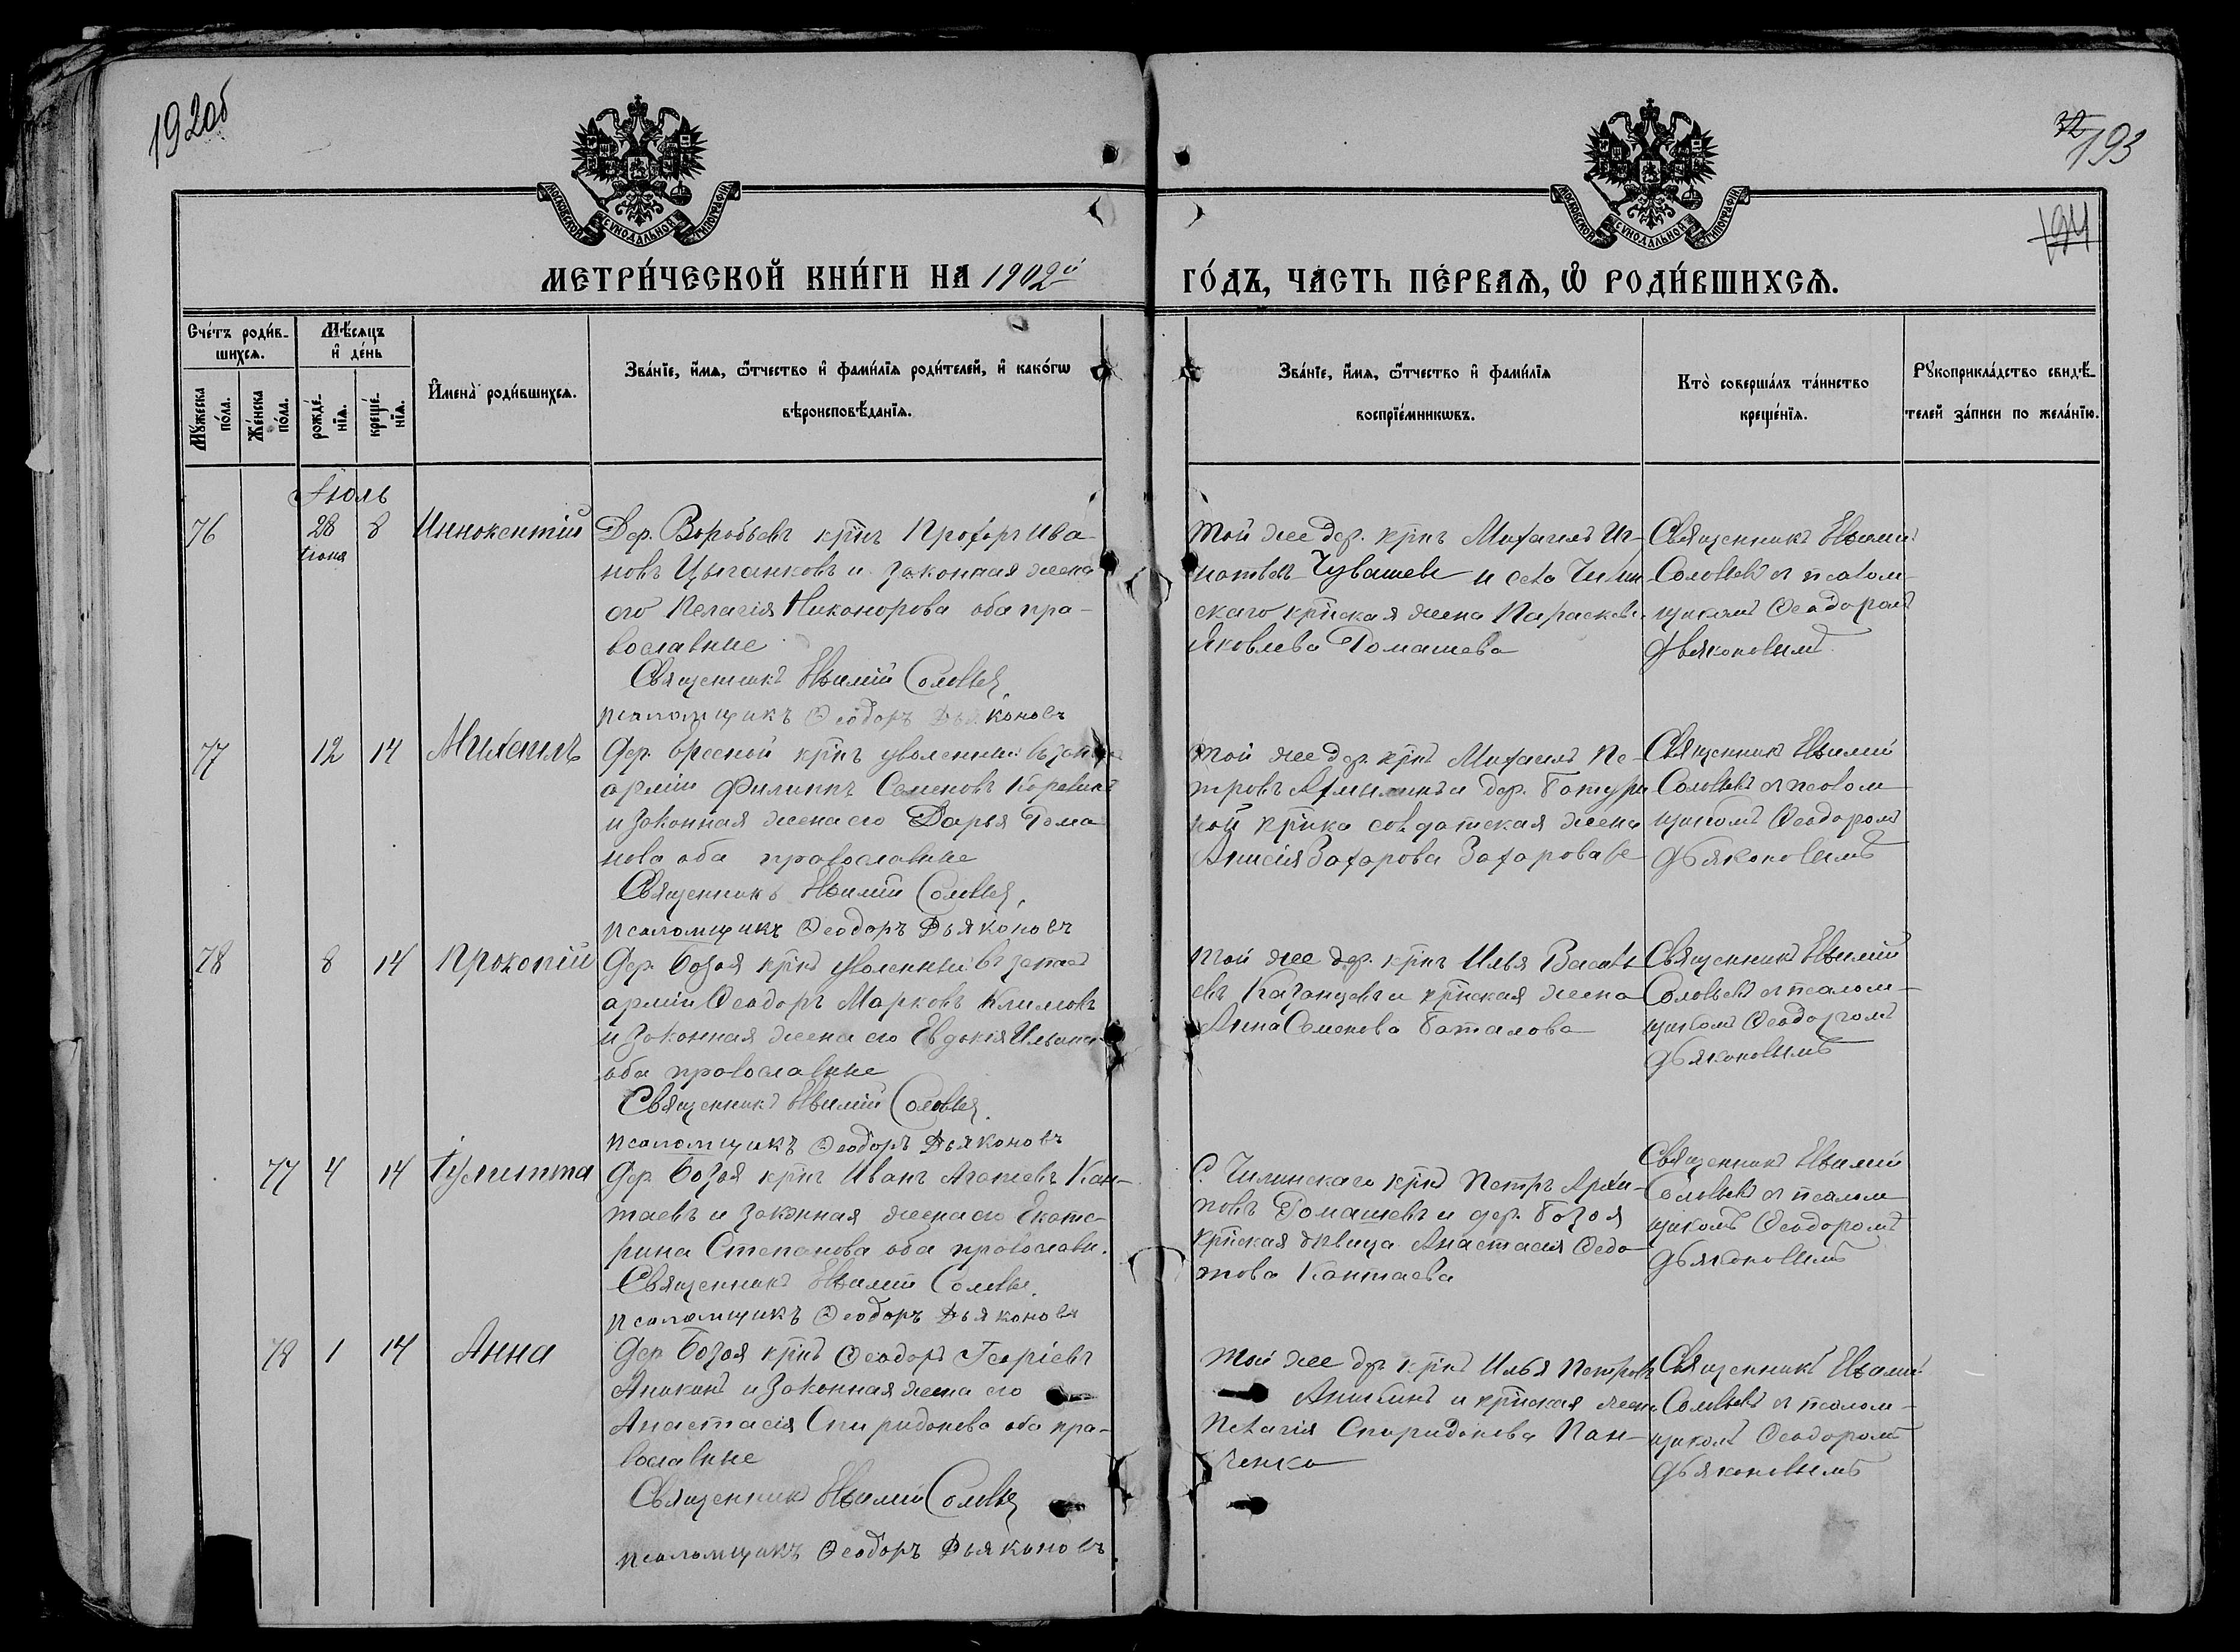 192об
32
193
194
МОСКОВСКОЙ СѴНОДАЛЬНОЙ ТИПОГРАФІИ
МОСКОВСКОЙ СѴНОДАЛЬНОЙ ТИПОГРАФІИ
МЕТРИ́ЧЕСКОЙ КНИ́ГИ НА 1902й
ГО́ДЪ, ЧАСТЬ ПЕ́РВАѦ, Ѡ РОДИ́ВШИХСѦ.
Сче́тъ роди́в-
шихсѧ.
Мѣсяцъ
и де́нь
Мꙋжеска
по́ла.
Же́нска
по́ла.
рожде́-
нїѧ.
креще́-
нїѧ.
Имена̀ роди́вшихсѧ.
Зва́нїе, имѧ, ѻтчество и фами́лїѧ роди́телей, и како́гѡ
вѣроисповѣ́данїѧ.
Зва́нїе, имѧ, ѻтчество и фами́лїѧ
воспрїе́мникѡвъ.
Кто̀ соверша́лъ та́инство
креще́нїѧ.
Рꙋкоприкла́дство свидѣ́-
телей за́писи по жела́нїю.
Іюль
76 28 8 Иннокентій
Іюня
Дер. Воробьевъ крнъ Прохоръ Ива-
новъ Цыганковъ и законная жена
его Пелагія Никонорова оба пра-
вославные
Священникъ Евѳимій Соловьев
псаломщикъ Ѳеодоръ Дьяконовъ
Той же дер. крнъ Михаилъ Иг-
натьевъ Чувашевъ и села Чилин
скаго крнская жена Параскева
Яковлева Ромашева
Священникъ Евѳимій
Соловьевъ съ псалом-
щикомъ Ѳеодоромъ
Дьяконовымъ
77 12 14 Михаилъ
Дер. крнъ уволенный въ запас
арміи Филиппъ Семеновъ
и законная жена его Дарья Рома
нова оба православные
Священникъ Евѳимій Соловьев
псаломщикъ Ѳеодоръ Дьяконовъ
Той же дер. крнъ Михаилъ Пе-
тровъ и дер. Батури
ной крнка солдатская жена
Анисія Захарова Захарова
Священникъ Евѳимій
Соловьевъ съ псалом
щикомъ Ѳеодоромъ
Дьяконовымъ
78 8 14 Прокопій
Дер. Бозоя крнъ уволенный въ запас
арміи Ѳеодоръ Марковъ Климовъ
и законная жена его Евдокія Ильина
оба православные
Священникъ Евѳимій Соловьев
псаломщикъ Ѳеодоръ Дьяконовъ
Той же дер. крнъ Илья Василь
евъ Казанцевъ и крнская жена
Анна Семенова Баталова
Священникъ Евѳимій
Соловьевъ съ псалом-
щикомъ Ѳеодоромъ
Дьяконовымъ
77 4 14 Іулитта
Дер. Бозоя крнъ Иванъ Кан-
таевъ и законная жена его Екате-
рина Степанова оба православн.
Священникъ Евѳимій Соловье
псаломщикъ Ѳеодоръ Дьяконовъ
С. Чилинскаго крнъ Петръ Архи-
повъ Ромашевъ и дер. Бозоя
крнская дѣвица Анастасія Ѳедо-
това Кантаева
Священникъ Евѳимій
Соловьевъ съ псалом
щикомъ Ѳеодоромъ
Дьяконовымъ
78 1 14 Анна
Дер. Бозоя крнъ Ѳеодоръ Георгіевъ
Аникинъ и законная жена его
Анастасія Спиридонова оба пра-
вославные
Священникъ Евѳимій Соловьев
псаломщикъ Ѳеодоръ Дьяконовъ
Той же дер крнъ Илья Петровъ
Аникинъ и крнская жена
Пелагія Спиридонова Пан-
ченко
Священникъ Евѳимій
Соловьевъ съ псалом-
щикомъ Ѳеодоромъ
Дьяконовымъ